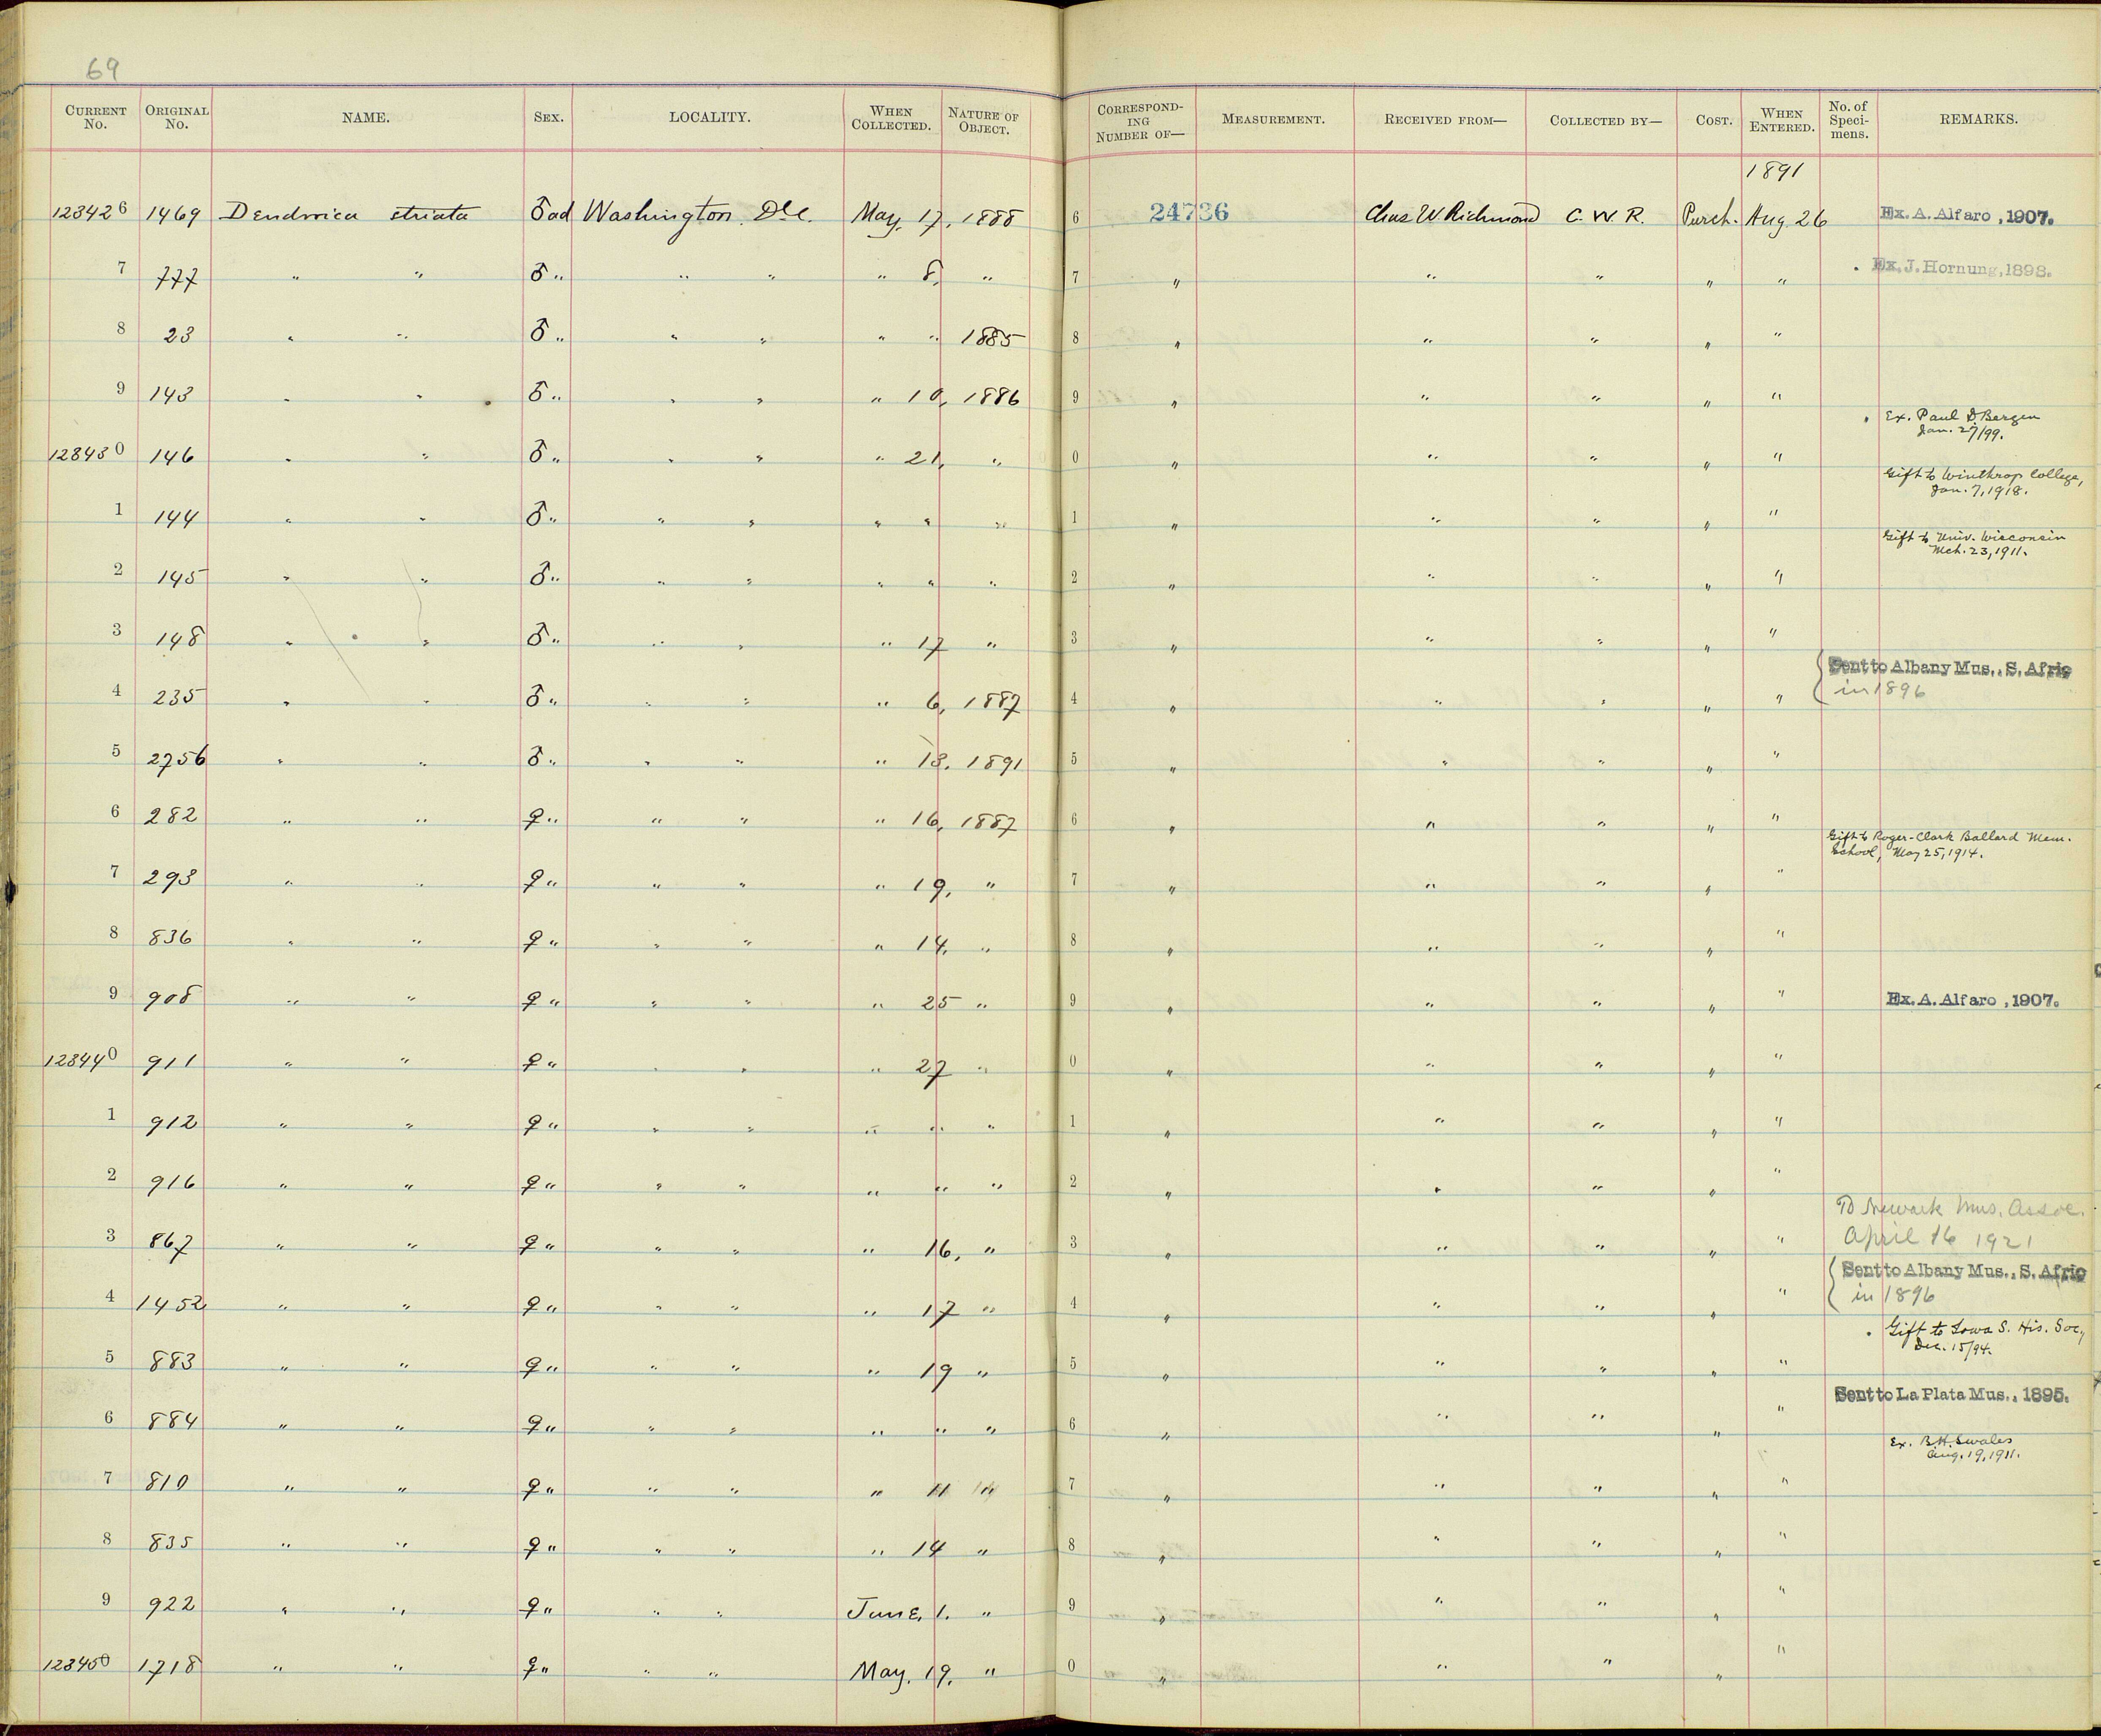 69
CURRENT No. ORIGINAL No. NAME. SEX. LOCALITY. WHEN COLLECTED. NATURE OF OBJECT. CORRESPONDING NUMBER OF— MEASUREMENT. RECEIVED FROM— COLLECTED BY— COST. WHEN ENTERED. No. of Specimens. REMARKS.
1891
123426 1469 Dendroica striata ♂ ad Washington D.C. May, 17, 1888 6 24736 Chas W Richmond C. W. R. Purch. Aug 26 Ex. A. Alfaro, 1907.
7 777 " " ♂ " " " " 8, " 7 " " " " " Ex. J. Hornung, 1898.
8 23 " " ♂ " " " " " 1885 8 " " " " "
9 143 " " ♂ " " " " 10, 1886 9 " " " " "
Ex. Paul D. Bergen
Jan. 27/99.
123430 146 " " ♂ " " " " 21, " 0 " " " " "
Gift to Winthrop College,
Jan. 7, 1918.
1 144 " " ♂ " " " " " " 1 " " " " "
Gift to Univ. Wisconsin
Mch. 23, 1911.
2 145 " " ♂ " " " " " " 2 " " " " "
3 148 " " ♂ " " " " 17 " 3 " " " " "
Sent to Albany Mus., S. Afric
in 1896
4 235 " " ♂ " " " " 6, 1887 4 " " " " "
5 2756 " " ♂ " " " " 13, 1891 5 " " " " "
6 282 " " ♀ " " " " 16, 1887 6 " " " " "
Gift to Roger-Clark Ballard Mem.
School, May 25, 1914.
7 293 " " ♀ " " " " 19, " 7 " " " " "
8 836 " " ♀ " " " " 14, " 8 " " " " "
9 908 " " ♀ " " " " 25 " 9 " " " " " Ex. A. Alfaro, 1907.
123440 911 " " ♀ " " " " 27 " 0 " " " " "
1 912 " " ♀ " " " " " " 1 " " " " "
2 916 " " ♀ " " " " " " 2 " " " " "
To Newark Mus. Assoc.
April 16 1921
3 867 " " ♀ " " " " 16, " 3 " " " " "
Sent to Albany Mus., S. Afric
in 1896
4 1452 " " ♀ " " " " 17 " 4 " " " " "
Gift to Iowa S. His. Soc.,
Dec. 15/94.
5 883 " " ♀ " " " " 19 " 5 " " " " "
Sent to La Plata Mus., 1895.
6 884 " " ♀ " " " " " " 6 " " " " "
Ex. B.H. Swales
Aug. 19, 1911.
7 810 " " ♀ " " " " 11 " 7 " " " " "
8 835 " " ♀ " " " " 14 " 8 " " " " "
9 922 " " ♀ " " " June, 1. " 9 " " " " "
123450 1718 " " ♀ " " " May, 19, " 0 " " " "